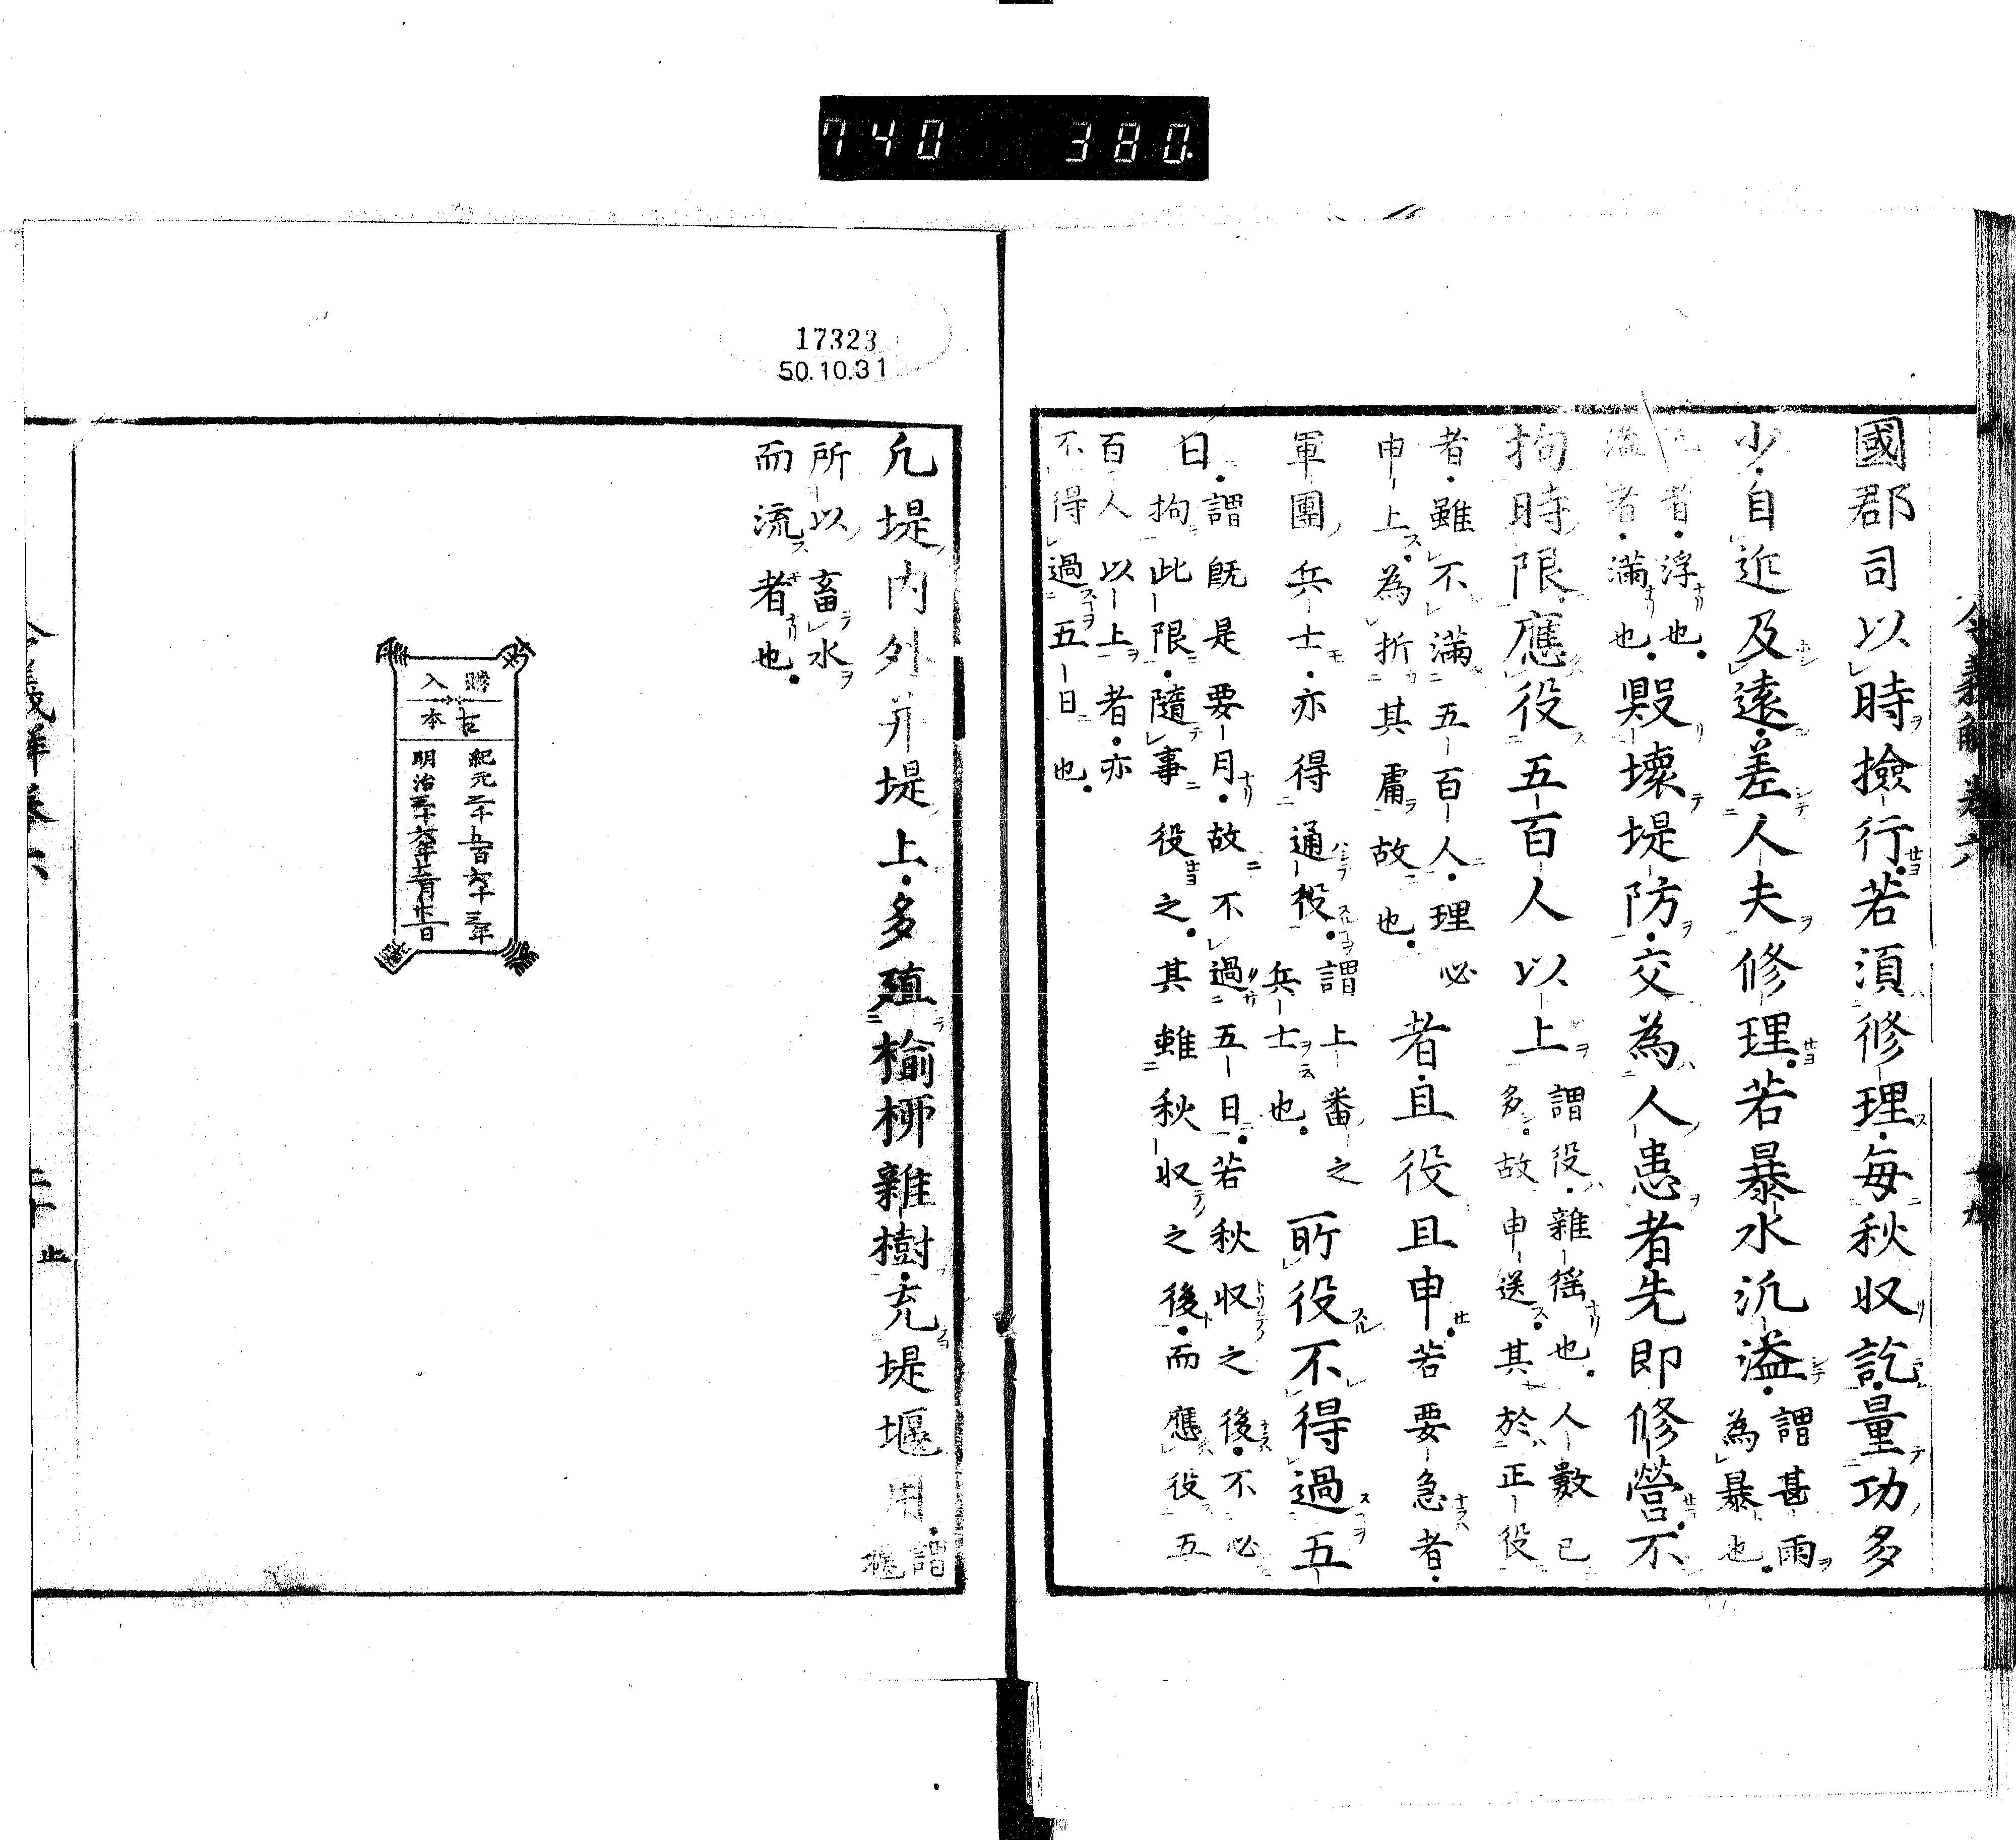 740 380.
國郡司以時撿行若須修理每秋収訖量功多
少自近及遠差人夫修理若暴水汎溢謂甚雨
為暴也
者浮也
溢者滿也毀壞堤防交為人患者先即修營不
拘時限應役五百人以上謂役雜徭也人數已
多故申送其於正役
者雖不滿五百人理必
申上為折其庸故也者且役且申若要急者
軍團兵士亦得通役謂上番之
兵士也所役不得過五
日謂既是要月故不過五日若秋収之後不必
拘此限隨事役之其雖秋収之後而應役五
百人以上者亦
不得過五日也
17323
50.10.31
凡堤内外并堤上多殖榆柳雜樹充堤堰用謂
堰
所以畜水
而流者也
購入
古本
紀元二千五百六十三年
明治三十六年